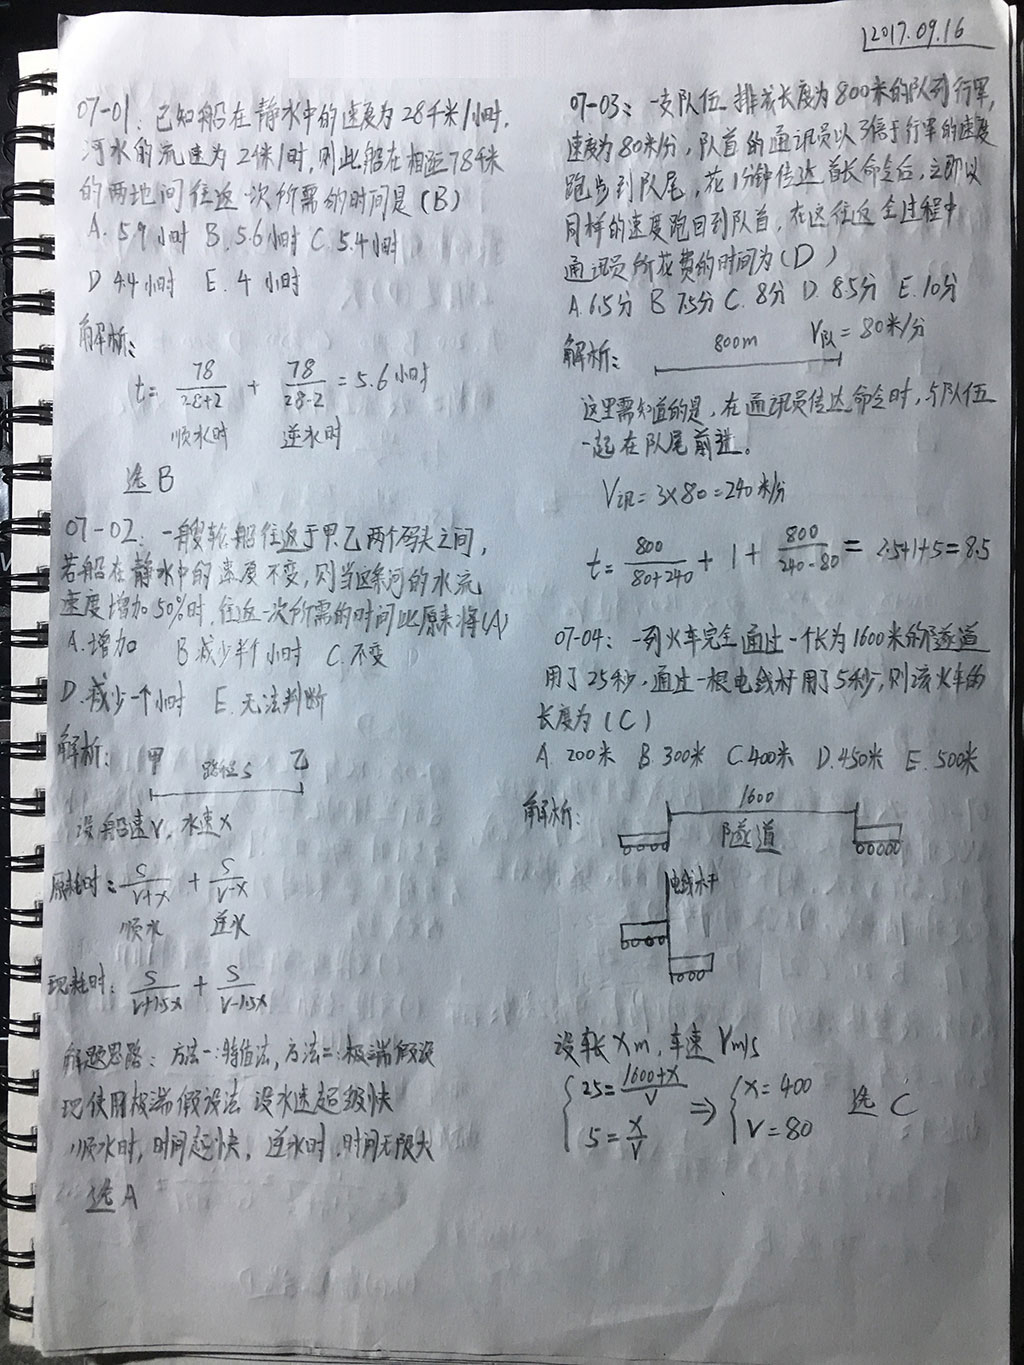 2017.09.16
07-01: 已知船在静水中的速度为28千米/小时,
河水的流速为2千米/时,则此船在相距78千米
的两地间往返一次所需的时间是(B)
A. 5.9小时 B. 5.6小时 C. 5.4小时
D 4.4小时 E. 4小时
解析:
t= 78/28+2 + 78/28-2 = 5.6小时
顺水时 逆水时
选B
07-02: 一艘轮船往返于甲乙两个码头之间,
若船在静水中的速度不变,则当这条河的水流
速度增加50%时,往返一次所需的时间比原来将(A)
A. 增加 B 减少半个小时 C. 不变
D. 减少一个小时 E. 无法判断
解析: 甲 路程S 乙
设船速V, 水速X
原耗时: S/V+X + S/V-X
顺水 逆水
现耗时: S/V+1.5X + S/V-1.5X
解题思路: 方法一:特值法, 方法二:极端假设
现使用极端假设法 设水速超级快
顺水时,时间越快, 逆水时,时间无限大
选A
07-03: 一支队伍排成长度为800米的队列行军,
速度为80米/分,队首的通讯员以3倍于行军的速度
跑步到队尾,花1分钟传达首长命令后,立即以
同样的速度跑回到队首,在这往返全过程中
通讯员所花费的时间为(D)
A. 6.5分 B 7.5分 C. 8分 D. 8.5分 E. 10分
解析: 800m V队=80米/分
这里需知道的是,在通讯员传达命令时,与队伍
一起在队尾前进。
V讯=3×80=240米/分
t= 800/80+240 + 1 + 800/240-80 = 2.5+1+5=8.5
07-04: 一列火车完全通过一个长为1600米的隧道
用了25秒,通过一根电线杆用了5秒,则该火车的
长度为(C)
A. 200米 B. 300米 C. 400米 D. 450米 E. 500米
解析: 1600
隧道
电线杆
设车长Xm, 车速Vm/s
{25=1600+X/V ⇒ {X=400 选C
5=X/V V=80